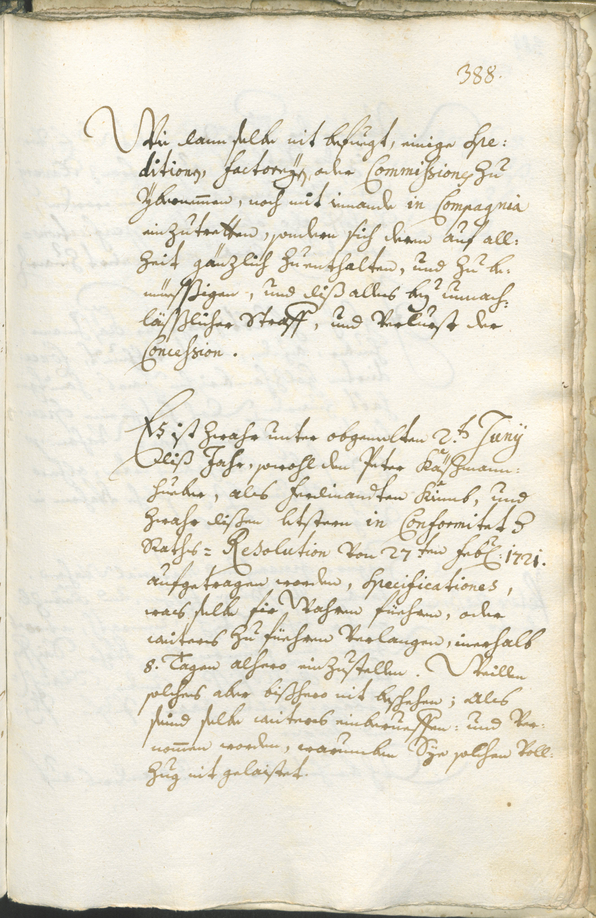 388.
Wie dann selbe nit befuegt, einige Spe:
ditiones, factoryen, oder Commissiones zu
ybernemmen, noch mit iemande in Compagnia
einzutretten, sondern sich deren auf all:
zeit gänzlich zu enthalten, und zu be:
miessigen, und diß alles bey unnach:
läßlicher Straff, und Verlurst der
Concession.
Es ist zwahr unter obgemelten 2.ten Juny
diß Jahr, sowohl dem Peter Käßmann:
hueber, als Ferdinandten Kinnb, und
zwahr disen letstern in Conformitet
Raths=Resolution von 27ten febr: 1721.
aufgetragen worden, Specificationes,
was selbe für Wahren füehren, oder
weiters zu füehren Verlangen, inerhalb
8. Tagen alhero einzustellen. Weillen
solches aber bißhero nit beschehen; als
seind selbe weiters einberueffen: und Ver:
nommen worden, warumben Sye solchen Voll:
zug nit gelaistet.